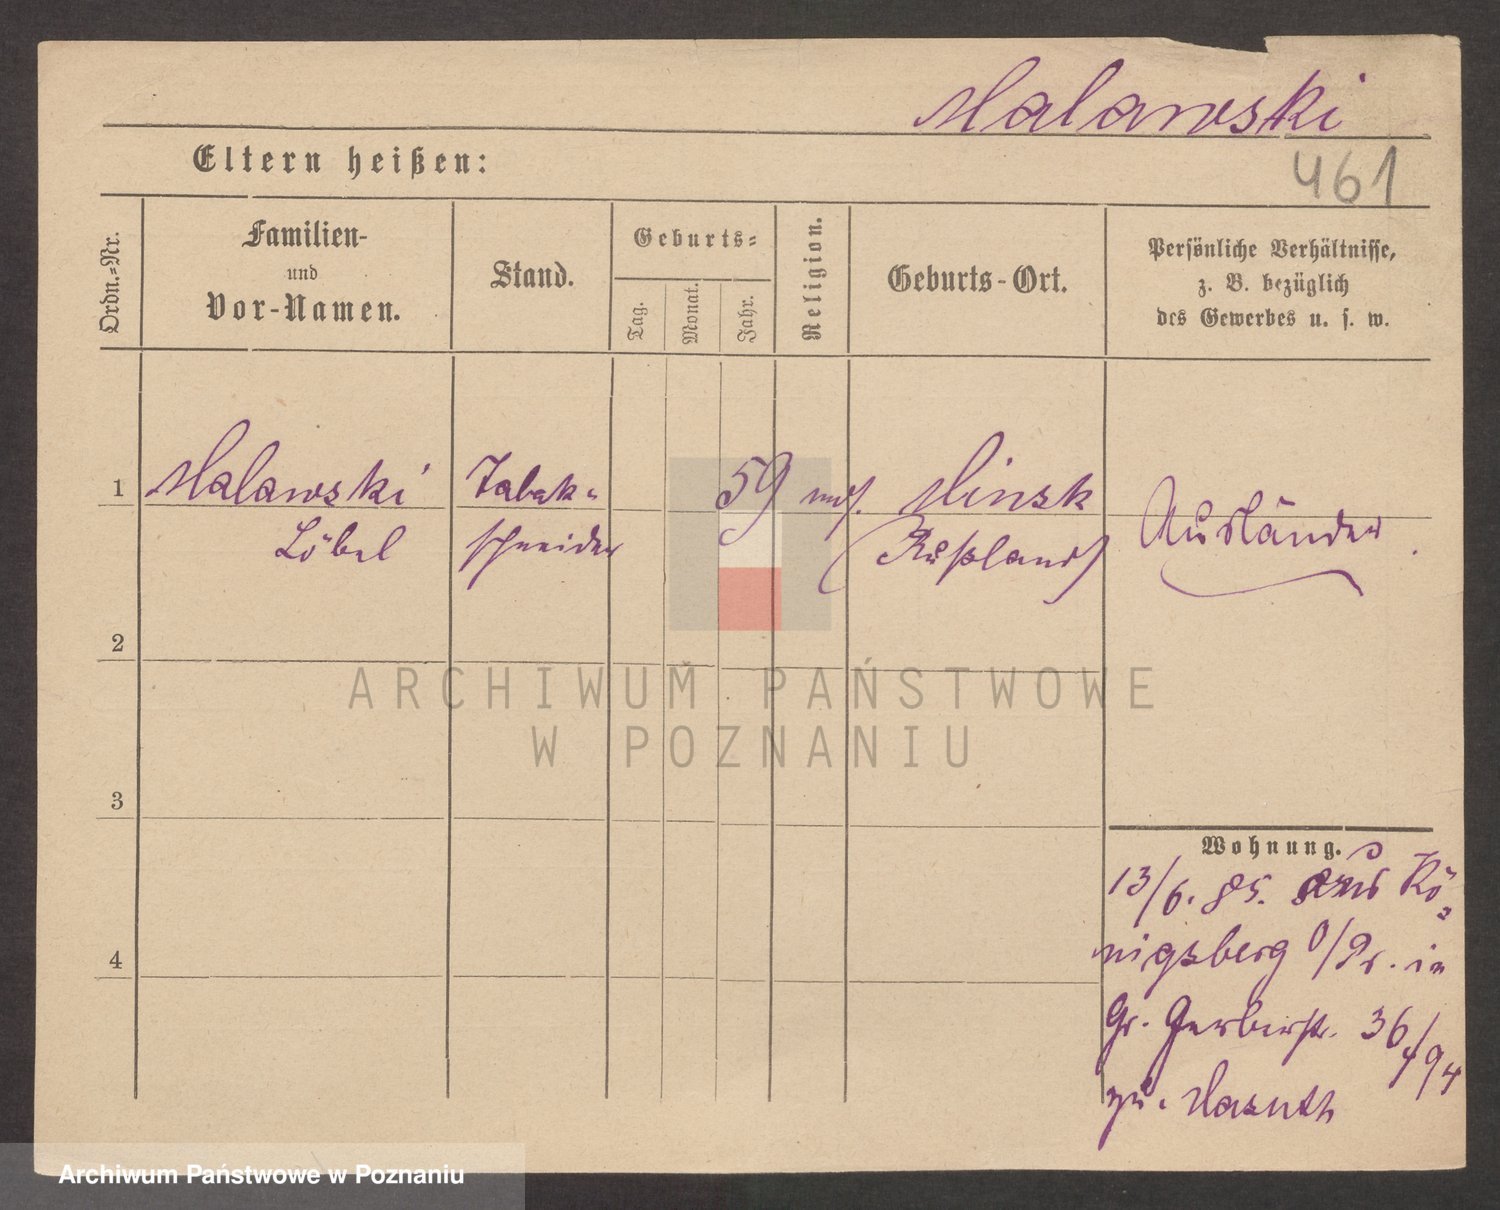 Malawski
Eltern heißen:
461
Ordn.=Nr.
Familien-
und
Vor-Namen.
Stand.
Geburts=
Tag.
Monat.
Jahr.
Religion.
Geburts-Ort.
Persönliche Verhältnisse,
z. B. bezüglich
des Gewerbes u. s. w.
1 Malawski Tabak= 59 mos. Minsk Ausländer
Löbel schneider (Rußland)
2
3
4
Wohnung.
13/6. 85. aus Kö=
nigsberg O/Pr. in
Gr. Gerberstr. 36
ARCHIWUM PAŃSTWOWE
W POZNANIU
Archiwum Państwowe w Poznaniu